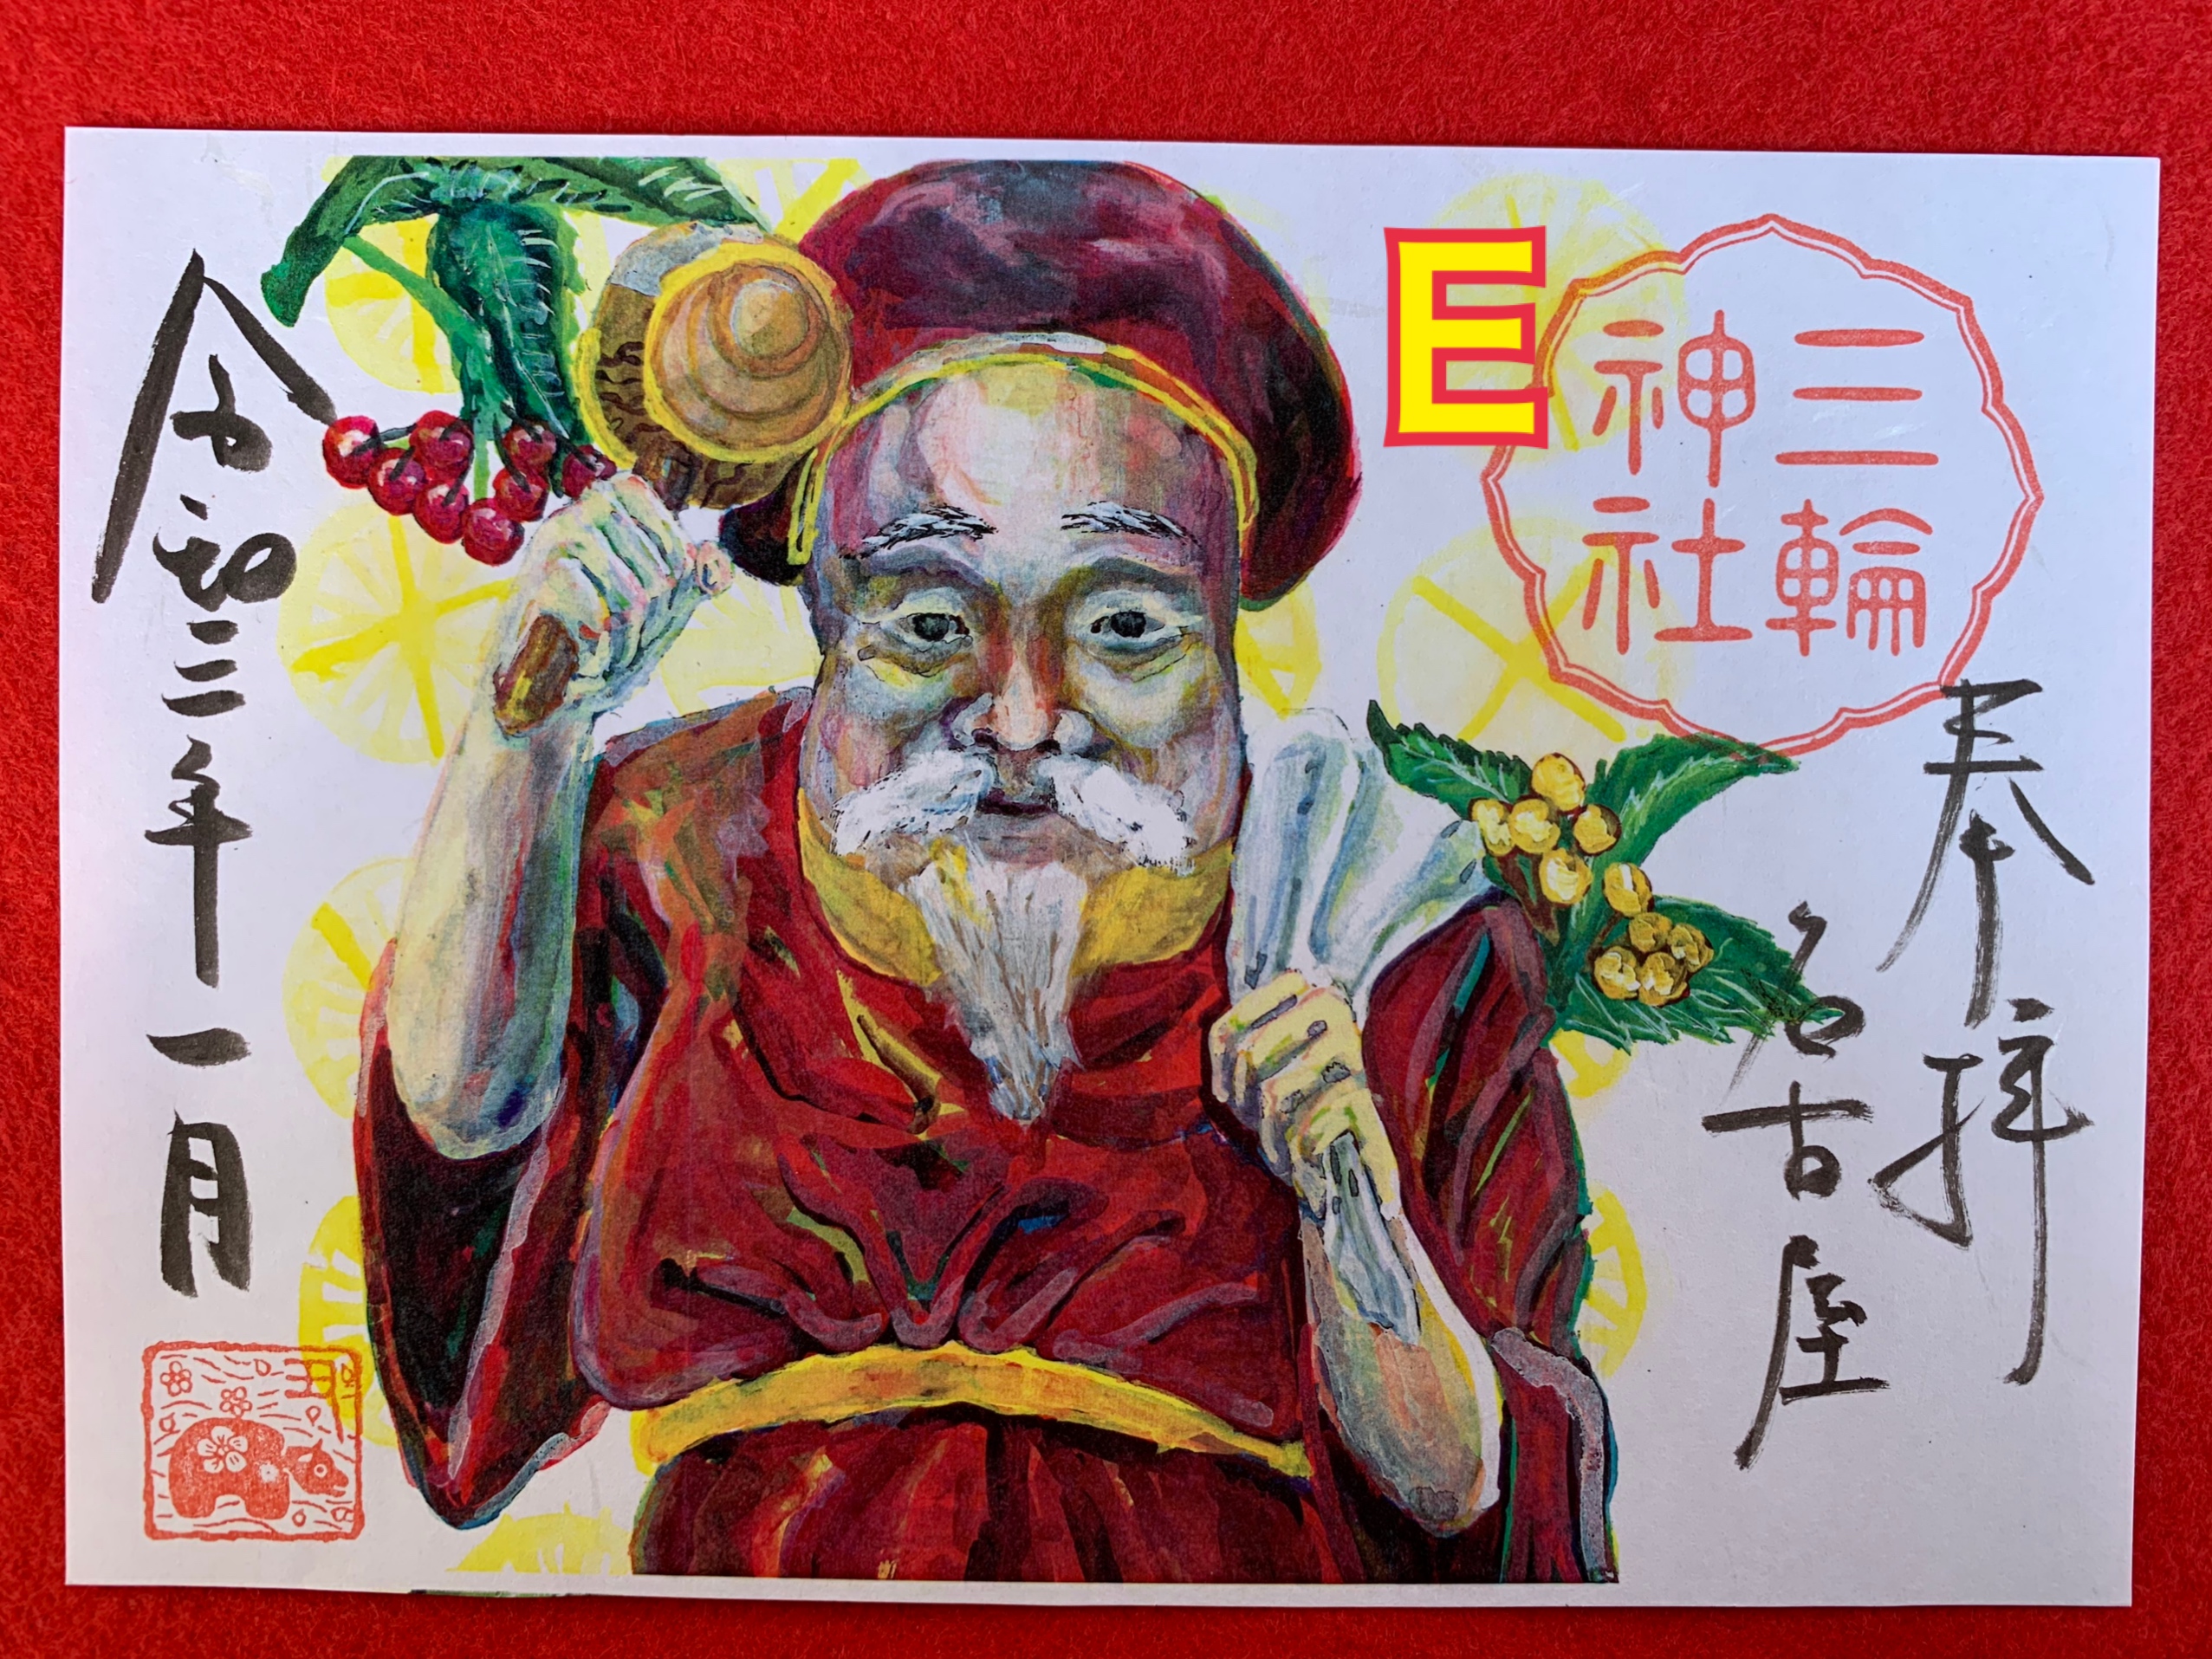 E
三輪
神社
奉拝
名古屋
令和三年一月
丑